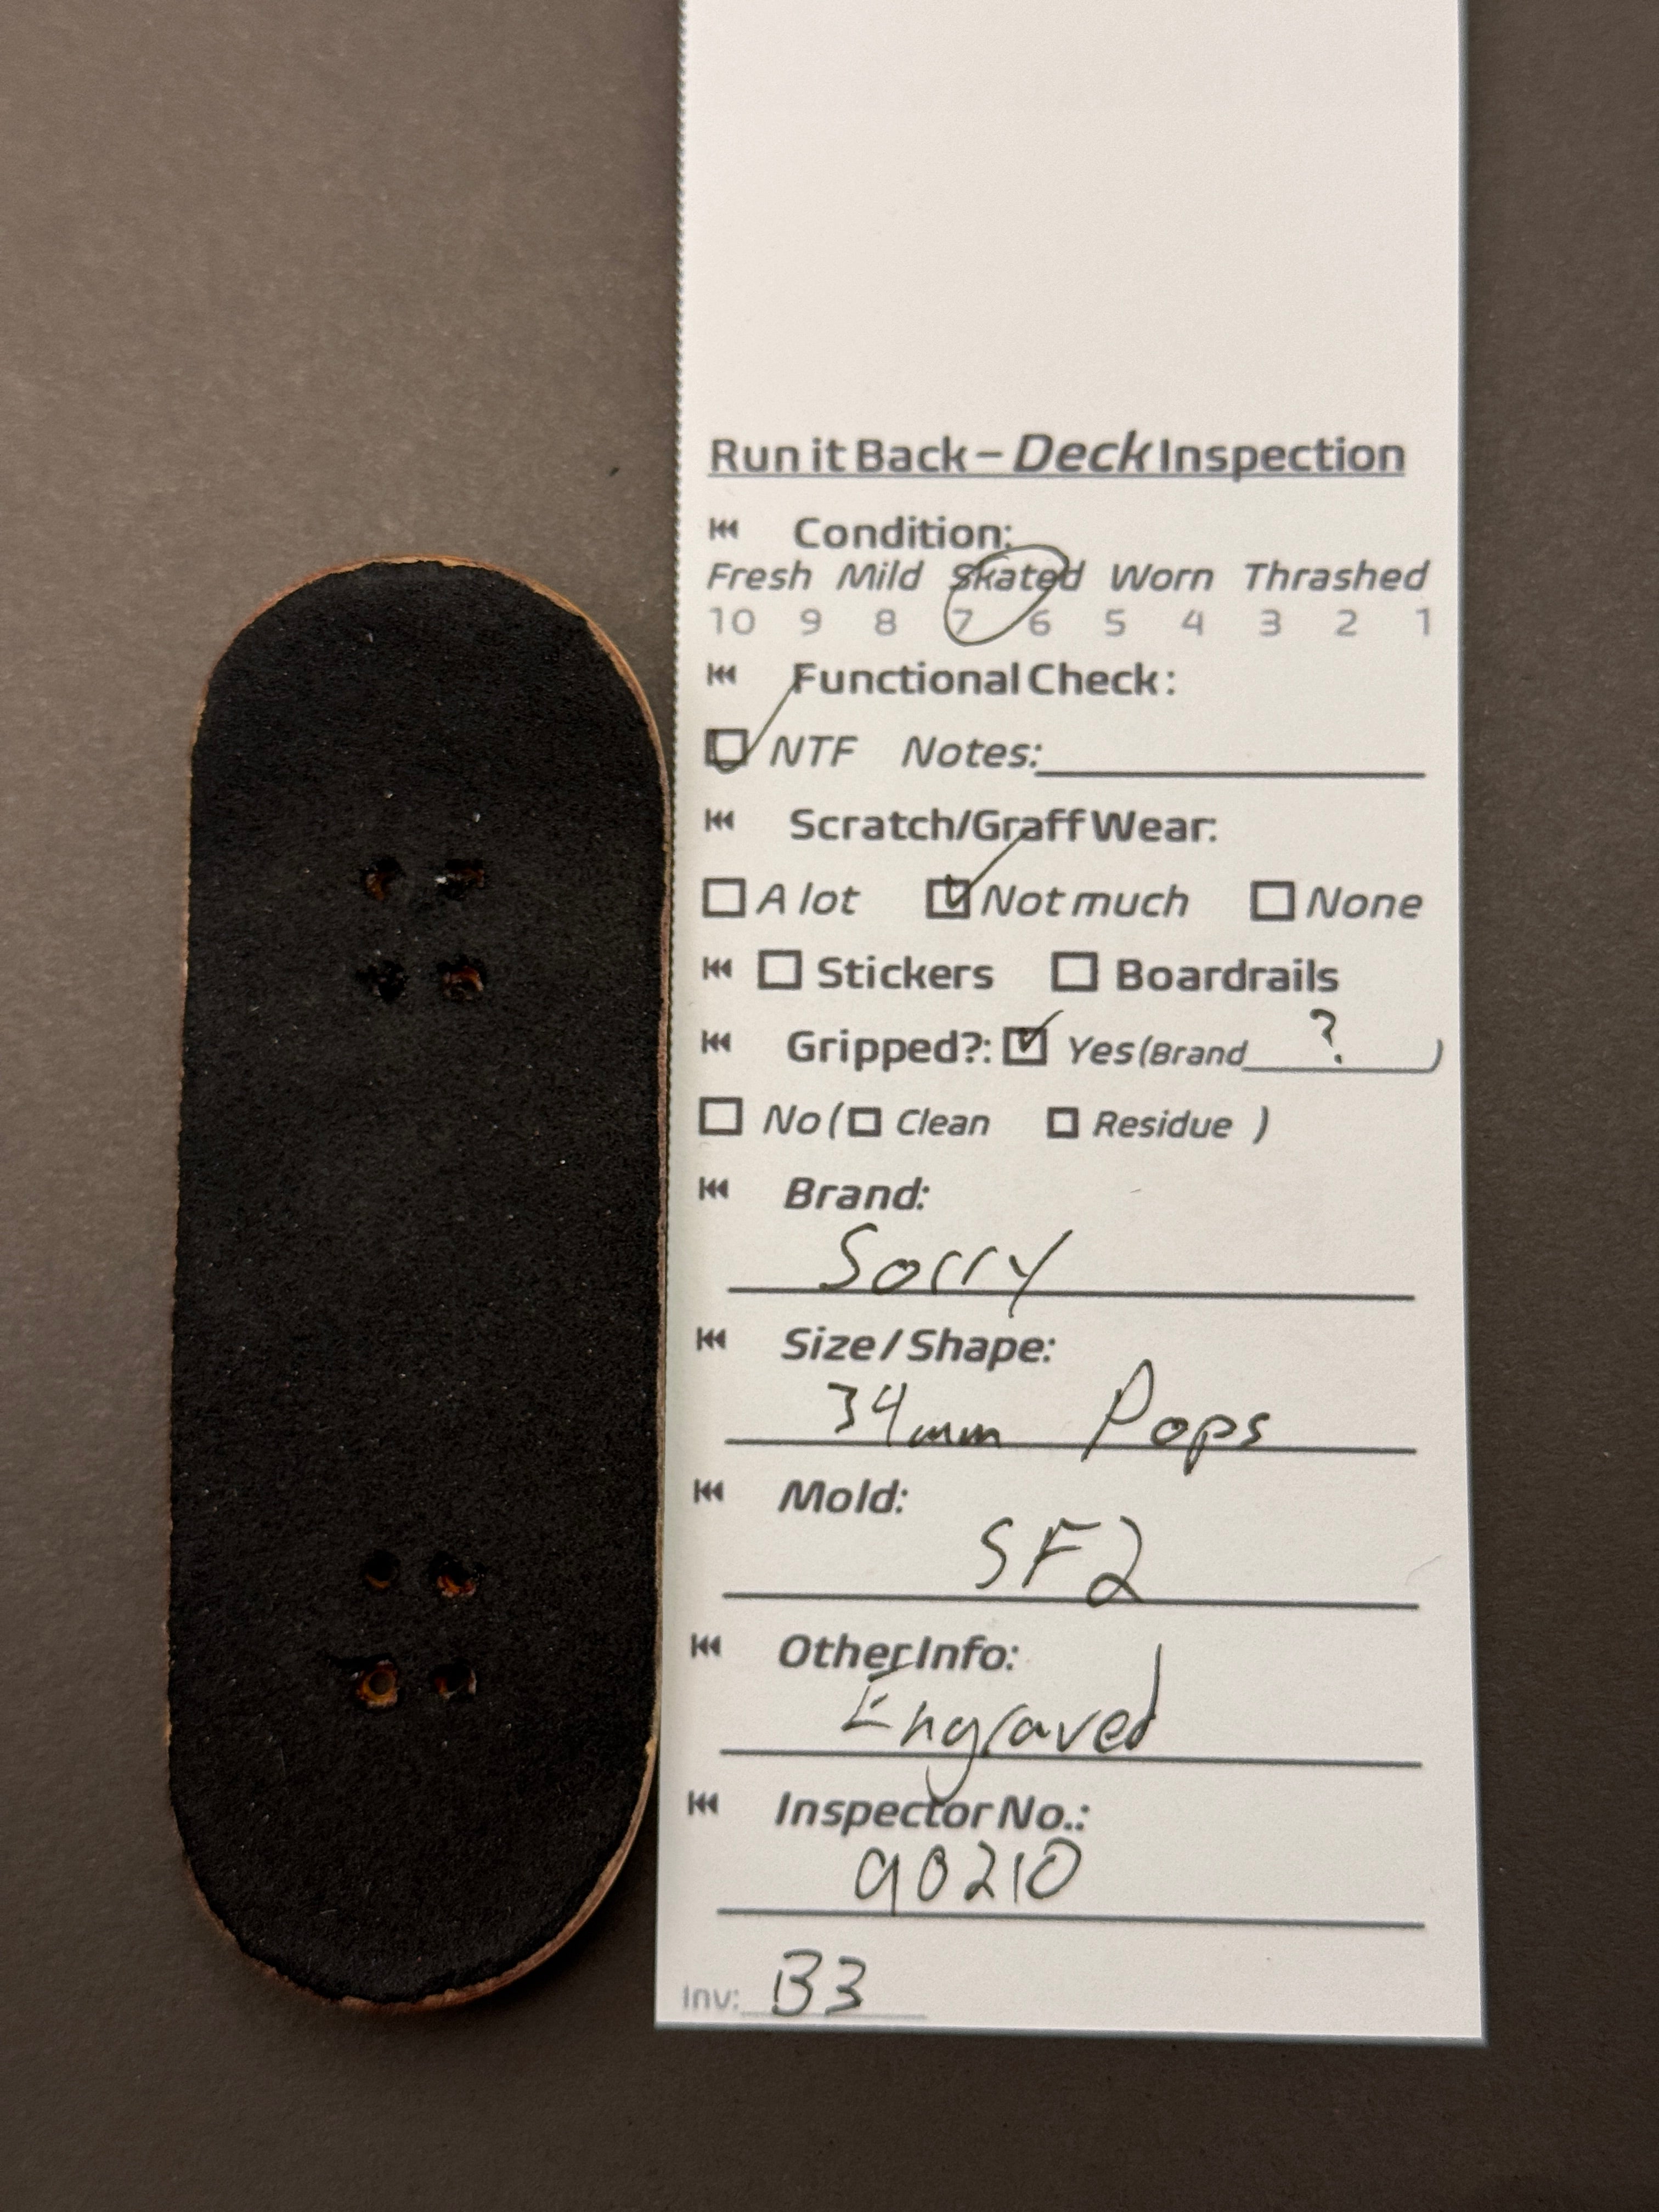 Run it Back – Deck Inspection
Condition:
Fresh Mild Skated Worn Thrashed
10 9 8 7 6 5 4 3 2 1
Functional Check:
NTF Notes:
Scratch/Graff Wear:
A lot Not much None
Stickers Boardrails
Gripped?: Yes (Brand ? )
No ( Clean Residue )
Brand:
Sorry
Size / Shape:
34mm Pops
Mold:
SF2
Other Info:
Engraved
Inspector No.:
90210
Inv: B3